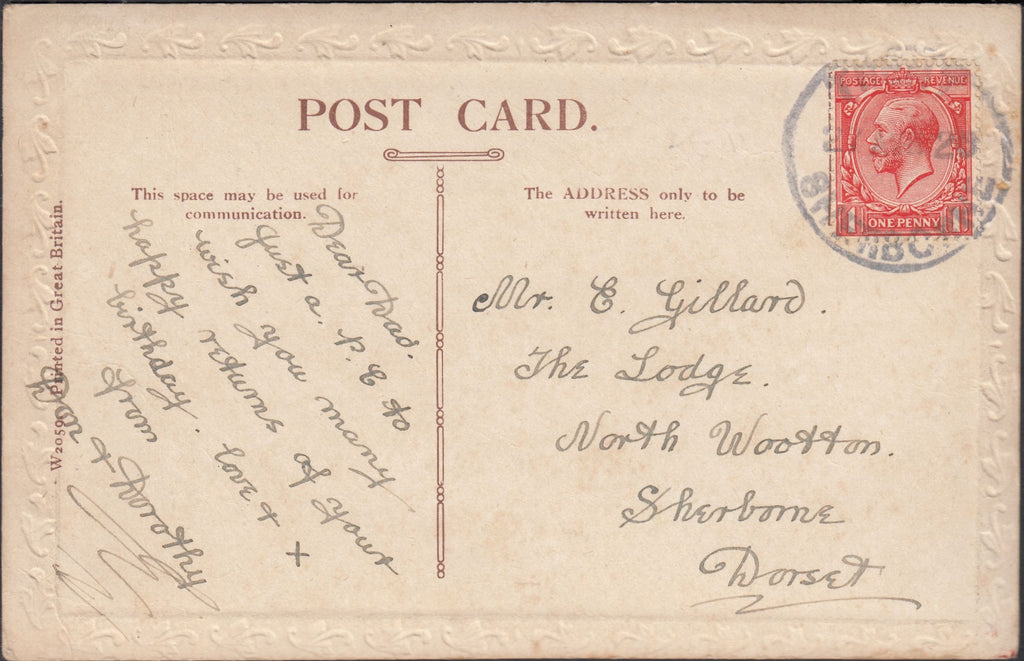 POST CARD.
This space may be used for
communication.
The ADDRESS only to be
written here.
POSTAGE REVENUE
1 ONE PENNY 1
23
W20590 Printed in Great Britain.
Dear Dad.
Just a. P. C to
wish you many
happy returns of your
birthday. love +
from +
& Dorothy
Mr. E. Gillard.
The Lodge.
North Wootton.
Sherborne
Dorset